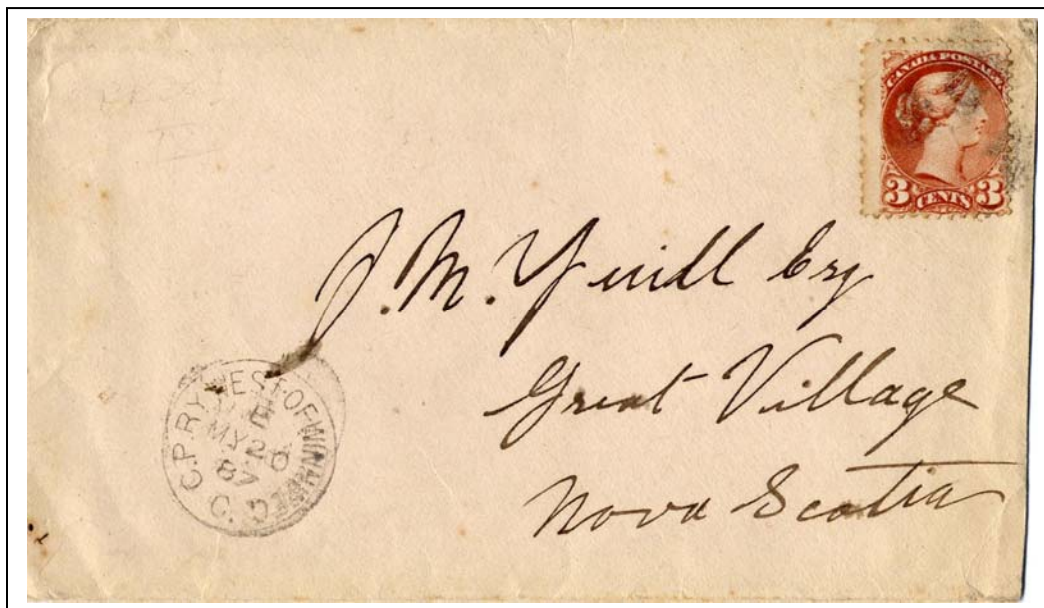 CANADA POSTAGE
3 CENTS 3
J. M. Yuill Esq
Great Village
Nova Scotia
C.P.RY WEST-OF-WINNIPEG
E
MY 20
87